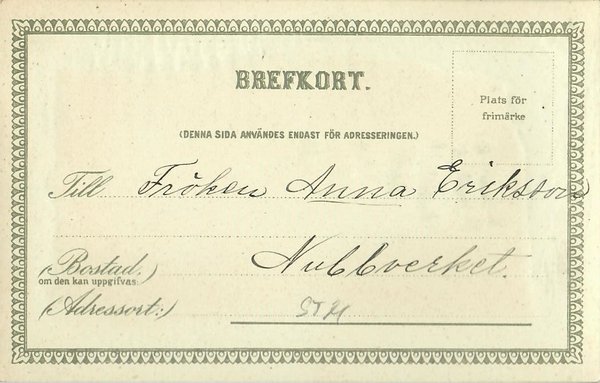 BREFKORT.
Plats för
frimärke
(DENNA SIDA ANVÄNDES ENDAST FÖR ADRESSERINGEN.)
Till Fröken Anna Eriksson
Nubbverket.
(Bostad.)
om den kan uppgifvas:
(Adressort:)